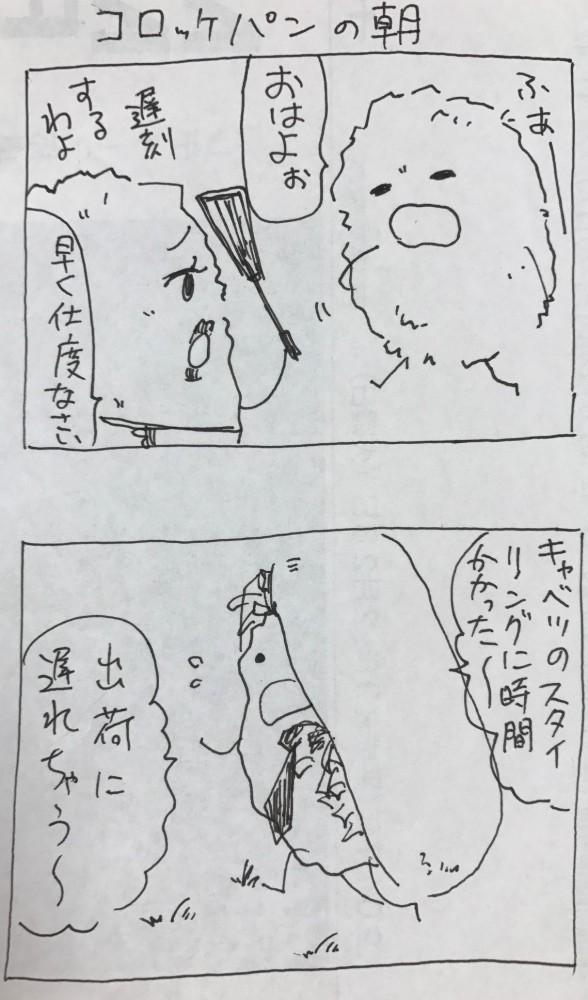 コロッケパンの朝
ふぁー
おはよぉ
遅刻
する
わよ
早く仕度なさい
キャベツのスタイ
リングに時間
かかった〜
出荷に
遅れちゃう〜